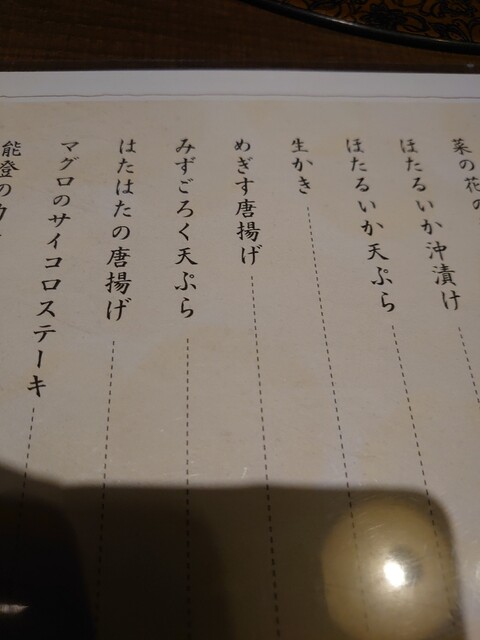 菜の花の
ほたるいか沖漬け
ほたるいか天ぷら
生かき
めぎす唐揚げ
みずごろく天ぷら
はたはたの唐揚げ
マグロのサイコロステーキ
能登の